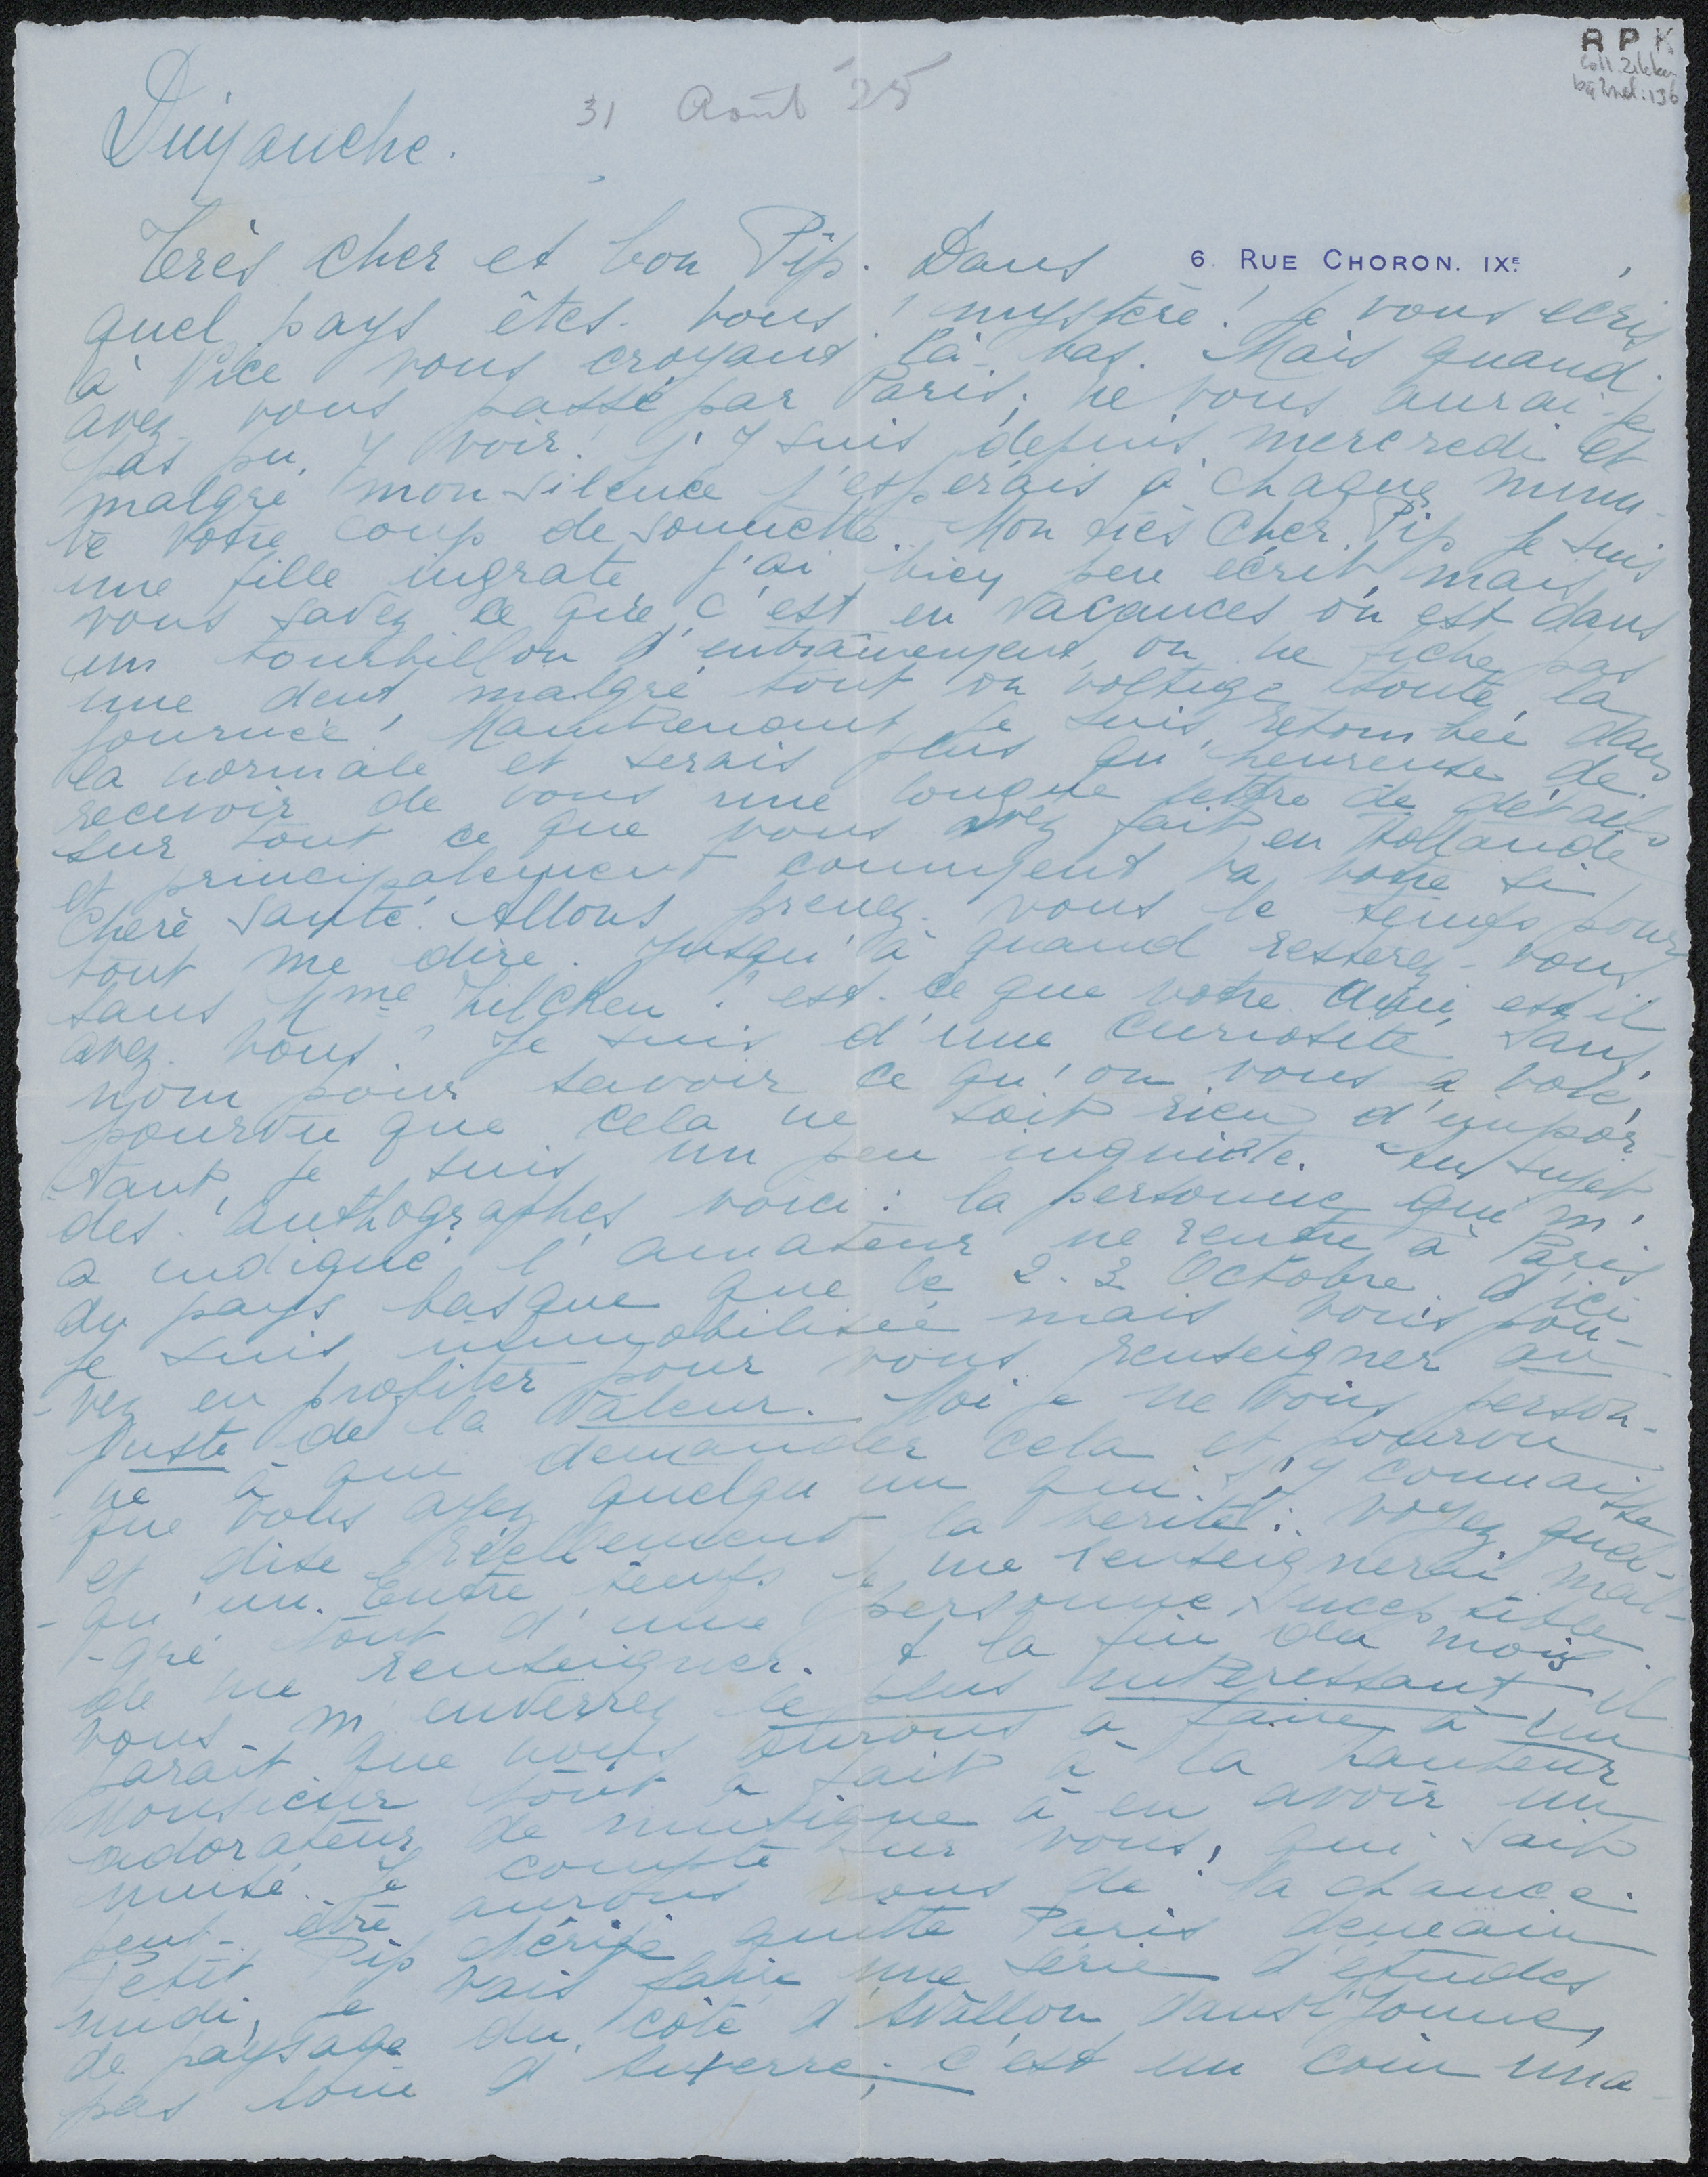 R P K
Coll. Zilcken
bij Inst: 136
31 Août 25
Dimanche.
Très cher et bon Pip. Dans
6. RUE CHORON. IXE.
quel pays êtes-vous! mystère! Je vous écris
à Nice vous croyant là-bas. Mais quand
avez vous passé par Paris; ne vous aurai-je
pas pu y voir! j'y suis depuis mercredi et
malgré mon silence j'espérais à chaque minu-
te votre coup de sonnette. Mon très cher Pip je suis
une fille ingrate j'ai bien peu écrit, mais
vous savez ce que c'est en vacances on est dans
un tourbillon d'entraînement, on ne fiche pas
une dent malgré tout on voltige toute la
journée! Maintenant je suis retombée dans
la normale et serais plus qu'heureuse de
recevoir de vous une longue lettre de détails
sur tout ce que vous avez fait en Hollande
et principalement comment va votre si
chère santé. Allons prenez-vous le temps pour
tout me dire. Jusqu'à quand resterez-vous
sans Mme Zilcken? est-ce que votre ami est-il
avez-vous? Je suis d'une curiosité sans
nom pour savoir ce qu'on vous a volé,
pourvu que cela ne soit rien d'impor-
tant, je suis un peu inquiète. Au sujet
des authographes voici: la personne qui m'
a indiqué l'amateur ne rentre à Paris
du pays basque que le 2.3 Octobre d'ici
je suis immobilisée mais vous pou-
-vez en profiter pour vous renseigner au
juste de la valeur. Moi je ne vois person-
ne à qui demander cela et pourvu
que vous ayez quelqu'un qui s'y connaisse
et dise réellement la vérité: voyez quel-
-qu'un. Entre temps je me renseignerai mal-
-gré tout d'une personne suceptible
de me renseigner. A la fin du mois
vous m'enverrez le plus intéressant il
parait que nous aurons à faire à un
Monsieur tout à fait à la hauteur
adorateur de musique à en avoir un
musé. Je compte sur vous, qui sait
peut-être aurons nous de la chance.
Petit Pip chéri je quitte Paris demain
midi, je vais faire une série d'études
de paysage du côté d'Avallon dans l'Yonne,
pas loin d'Auxerre; c'est un coin una-